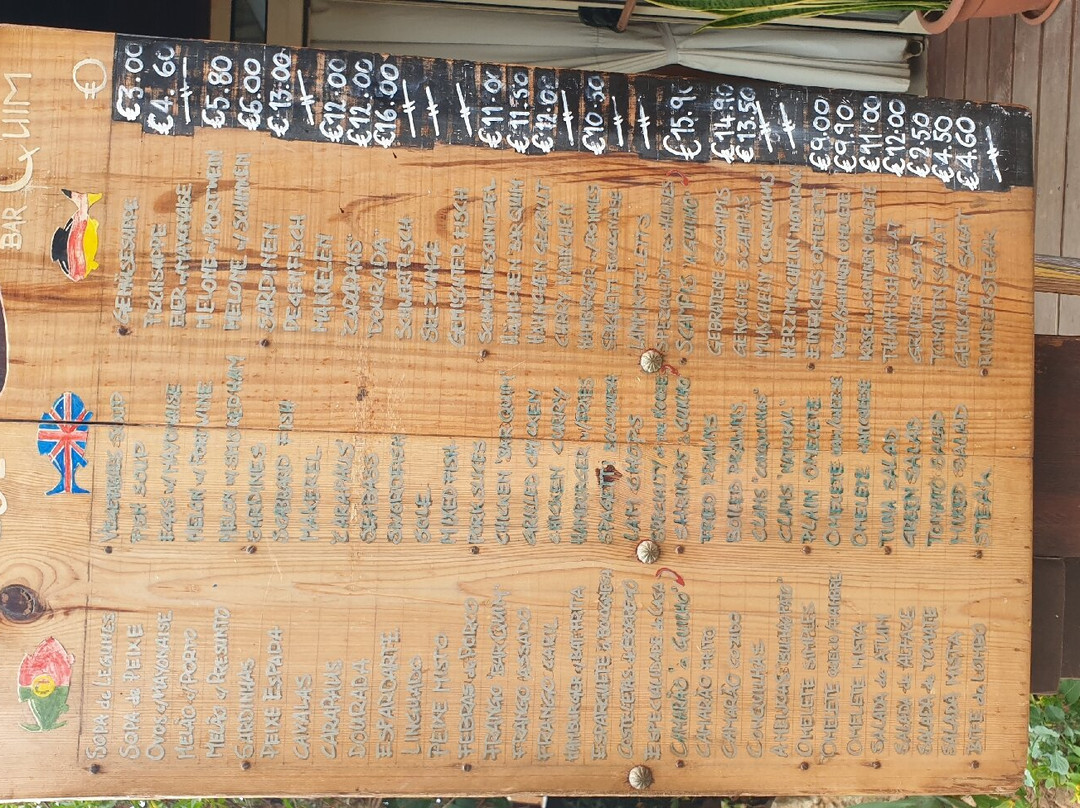 BAR QUIM
€
SOPA de LEGUMES VEGETABLES SOUP GEMÜSESUPPE €3.00
SOPA de PEIXE FISH SOUP FISCHSUPPE €4.60
OVOS c/MAYONAISE EGGS w/ MAYONAISE EIER w/MAYONAISE
MELÃO c/PORTO MELON w/ PORTWINE MELONE w/ PORTWEIN €5.80
MELÃO c/ PRESUNTO MELON w/ SMOKED HAM MELONE w/ SCHINKEN €6.00
SARDINHAS SARDINES SARDINEN €13.00
PEIXE ESPADA SCABBARD FISH DEGENFISCH
CAVALAS MAKEREL MAKRELEN
CARAPAUS "CARAPAUS" "CARAPAUS" €12.00
DOURADA SEABASS "DOURADA" €12.00
ESPADARTE SWORDFISH SCHWERTFISCH €16.00
LINGUADO SOLE SEEZUNGE
PEIXE MISTO MIXED FISH GEMISCHTER FISCH
FEBRAS de PORCO PORK SLICES SCHWEINESCHNITZEL €11.00
FRANGO "BAR QUIM" CHICKEN "BAR QUIM" HÄHNCHEN "BAR QUIM" €11.50
FRANGO ASSADO GRILLED CHICKEN HÄHNCHEN GEGRILLT
FRANGO CARIL CHICKEN CURRY CURRY HÄHNCHEN
HAMBURGER c/BATATITA HAMBURGER w/FRIES HAMBURGER w/POMMES €10.50
ESPARGUETE BOLONHESA SPAGETTI BOLOGNESE SPAGHETTI BOLOGNESE
COSTELETAS de BORREGO LAMB CHOPS LAMMKOTELETTS
ESPECIALIDADE da CASA SPECIALITY of the HOUSE SPEZIALITÄT des HAUSES
"CAMARÃO à GUILHO" "SHRIMPS à GUILHO" "SCAMPIS à GUILHO" €15.90
CAMARÃO FRITO FRIED PRAWNS GEBRATENE SCAMPIS €14.90
CAMARÃO COZIDO BOILED PRAWNS GEKOCHTE SCAMPIS €13.50
CONQUILHAS CLAMS "CONQUILHAS" MUSCHELN "CONQUILHAS"
AMEIJOAS "BULHÃO PATO" CLAMS
OMELETE SIMPLES PLAIN OMELETE EINFACHES OMELETTE €9.00
OMELETE QUEIJO FIAMBRE OMELETE HAM/CHEESE KÄSE/SCHINKEN OMELETTE €9.90
OMELETE MISTA OMELETE OMELETTE €11.00
SALADA de ATUM TUNA SALAD THUNFISCH SALAT €12.00
SALADA de ALFACE GREEN SALAD GRÜNER SALAT €2.50
SALADA de TOMATE TOMATO SALAD TOMATEN SALAT €4.50
SALADA MISTA MIXED SALAD GEMISCHTER SALAT €4.60
BIFE do LOMBO STEAK RINDERSTEAK